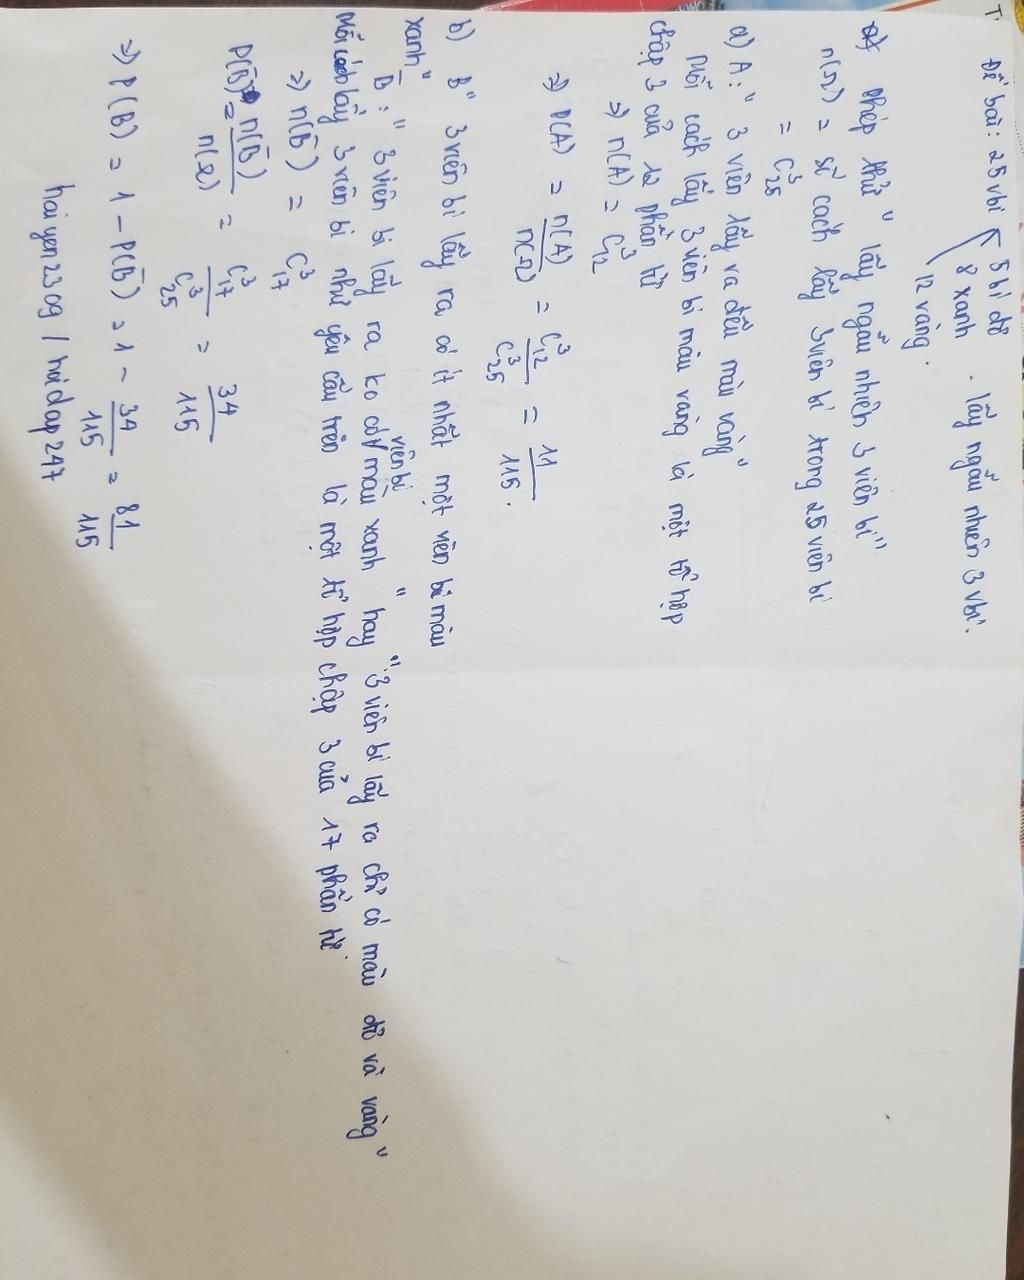 Đề bài: 25 vbi { 5 bi đỏ
8 xanh . lấy ngẫu nhiên 3 vbi.
12 vàng.
phép thử " lấy ngẫu nhiên 3 viên bi"
n(Ω) = số cách lấy 3 viên bi trong 25 viên bi
= C³₂₅
a) A: " 3 viên lấy ra đều màu vàng"
Mỗi cách lấy 3 viên bi màu vàng là một tổ hợp
chập 3 của 12 phần tử
⇒ n(A) = C³₁₂
⇒ P(A) = n(A)/n(Ω) = C³₁₂/C³₂₅ = 11/115.
b) B " 3 viên bi lấy ra có ít nhất một viên bi màu
xanh"
B̄ : " 3 viên bi lấy ra ko có viên bi màu xanh " hay "3 viên bi lấy ra chỉ có màu đỏ và vàng"
Mỗi cách lấy 3 viên bi như yêu cầu trên là một tổ hợp chập 3 của 17 phần tử
⇒ n(B̄) = C³₁₇
P(B̄) = n(B̄)/n(Ω) = C³₁₇/C³₂₅ = 34/115
⇒ P(B) = 1 - P(B̄) = 1 - 34/115 = 81/115
haiyen2309 / hoidap247